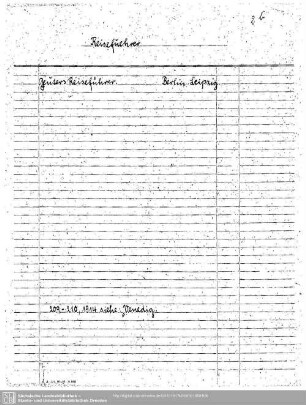 Reiseführer
Geuters Reiseführer. Berlin, Leipzig
209-210, 1914 siehe: Venedig.
Sächsische Landesbibliothek -
Staats- und Universitätsbibliothek Dresden